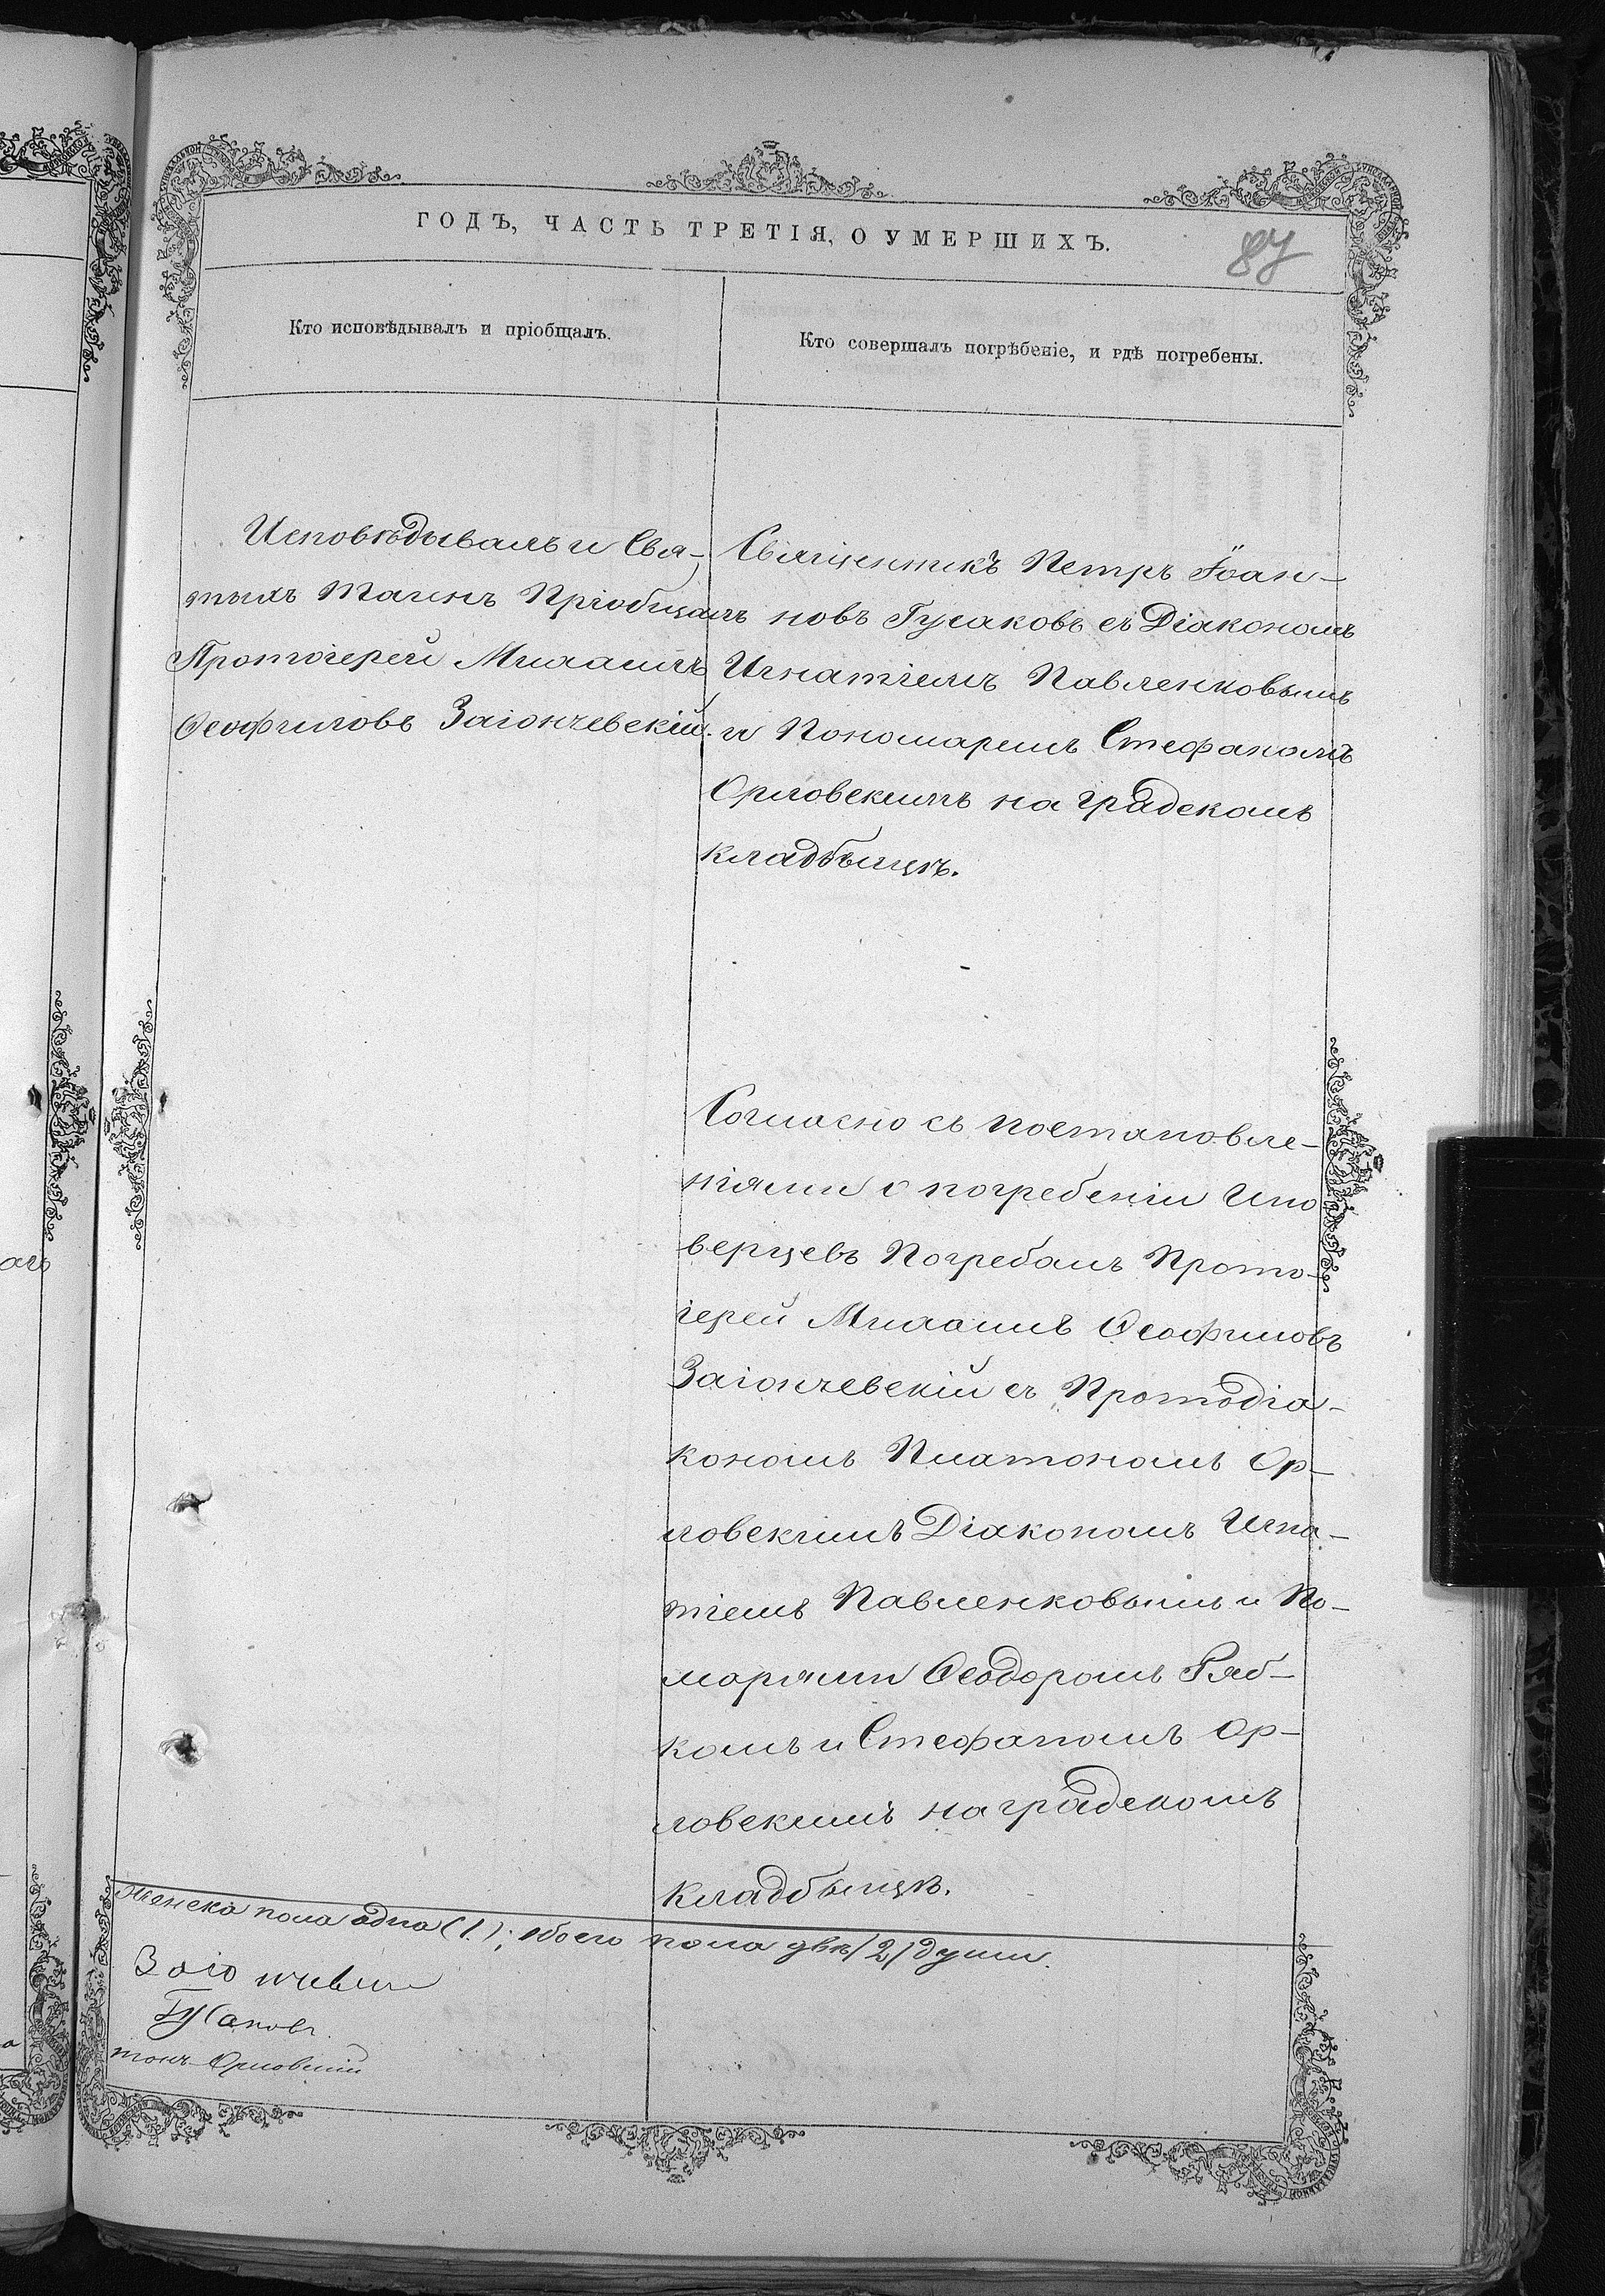 ГОДЪ, ЧАСТЬ ТРЕТІЯ, О УМЕРШИХЪ.
87
Кто исповѣдывалъ и пріобщалъ.
Кто совершалъ погрѣбеніе, и гдѣ погребены.
Исповѣдывалъ и Свя-
тыхъ Таинъ Пріобщалъ
Протоіерей Михаилъ
Ѳеофиловъ Заіончевскій.
Священникъ Петръ Іоан-
новъ Гусаковъ съ Діакономъ
Игнатіемъ Павленковымъ
и Пономаремъ Стефаномъ
Орловскимъ на градскомъ
кладбыщѣ.
Согласно съ постановле-
ніями о погребеніи Ино
верцевъ Погребалъ Прото-
іерей Михаилъ Ѳеофиловъ
Заіончевскій съ Протодіа-
кономъ Платономъ Ор-
ловскимъ Діакономъ Игна-
тіемъ Павленковымъ и По-
марями Ѳеодоромъ Ряб-
комъ и Стефаномъ Ор-
ловскимъ на градскомъ
Кладбыщѣ.
женска пола одна (1); обоего пола двѣ /2/ души.
Заіончевскі
Гусаковъ.
тонъ Орловскій